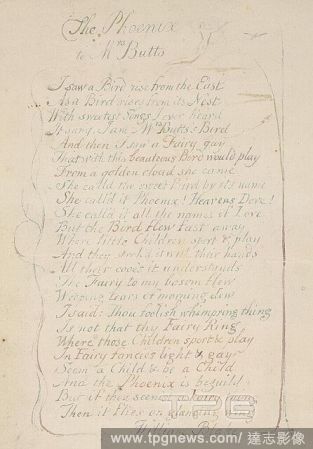 The Phoenix
to Mrs Butts
I saw a Bird rise from the East
As a Bird rises from its Nest
With sweetest Songs I ever heard
It sang I am Mrs Butts's Bird
And then I saw a Fairy gay
That with this beauteous Bird would play
From a golden cloud she came
She call'd the sweet Bird by its name
She call'd it Phoenix! Heavens Dove!
She call'd it all the names of Love
But the Bird flew fast away
Where little Children sport & play
And they strok'd it with their hands
All their cooe's it understands
The Fairy to my bosom flew
Weeping tears of morning dew
I said: Thou foolish whimp'ring thing
Is not that thy Fairy Ring
Where those Children sport & play
In Fairy fancies light & gay
Seem a Child & be a Child
And the Phoenix is beguil'd
But if thou seem a Fairy thing
Then it flies on glancing Wing
William Blake
TPG
www.tpgnews.com/ 達志影像